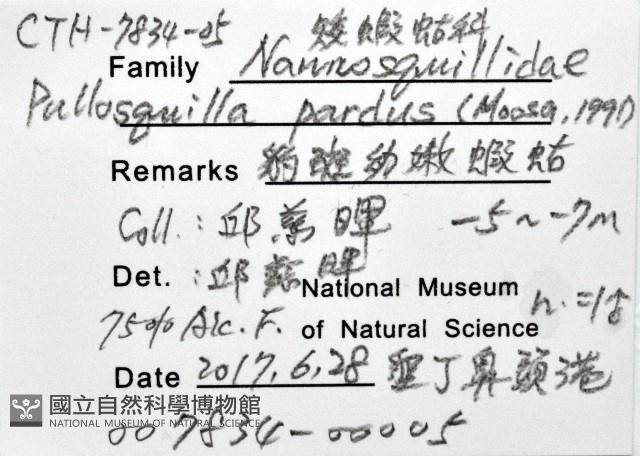 CTH-7834-05 矮蝦蛄科
Family Nannosquillidae
Pullosquilla pardus (Moosa, 1991)
Remarks 豹斑幼嫩蝦蛄
Coll.: 邱 暉 -5~-7m
Det.: 邱 暉
National Museum
75% Alc. F. of Natural Science n.=1♀
Date 2017,6,28 墾丁鼻頭港
國立自然科學博物館
NATIONAL MUSEUM OF NATURAL SCIENCE
007834-00005